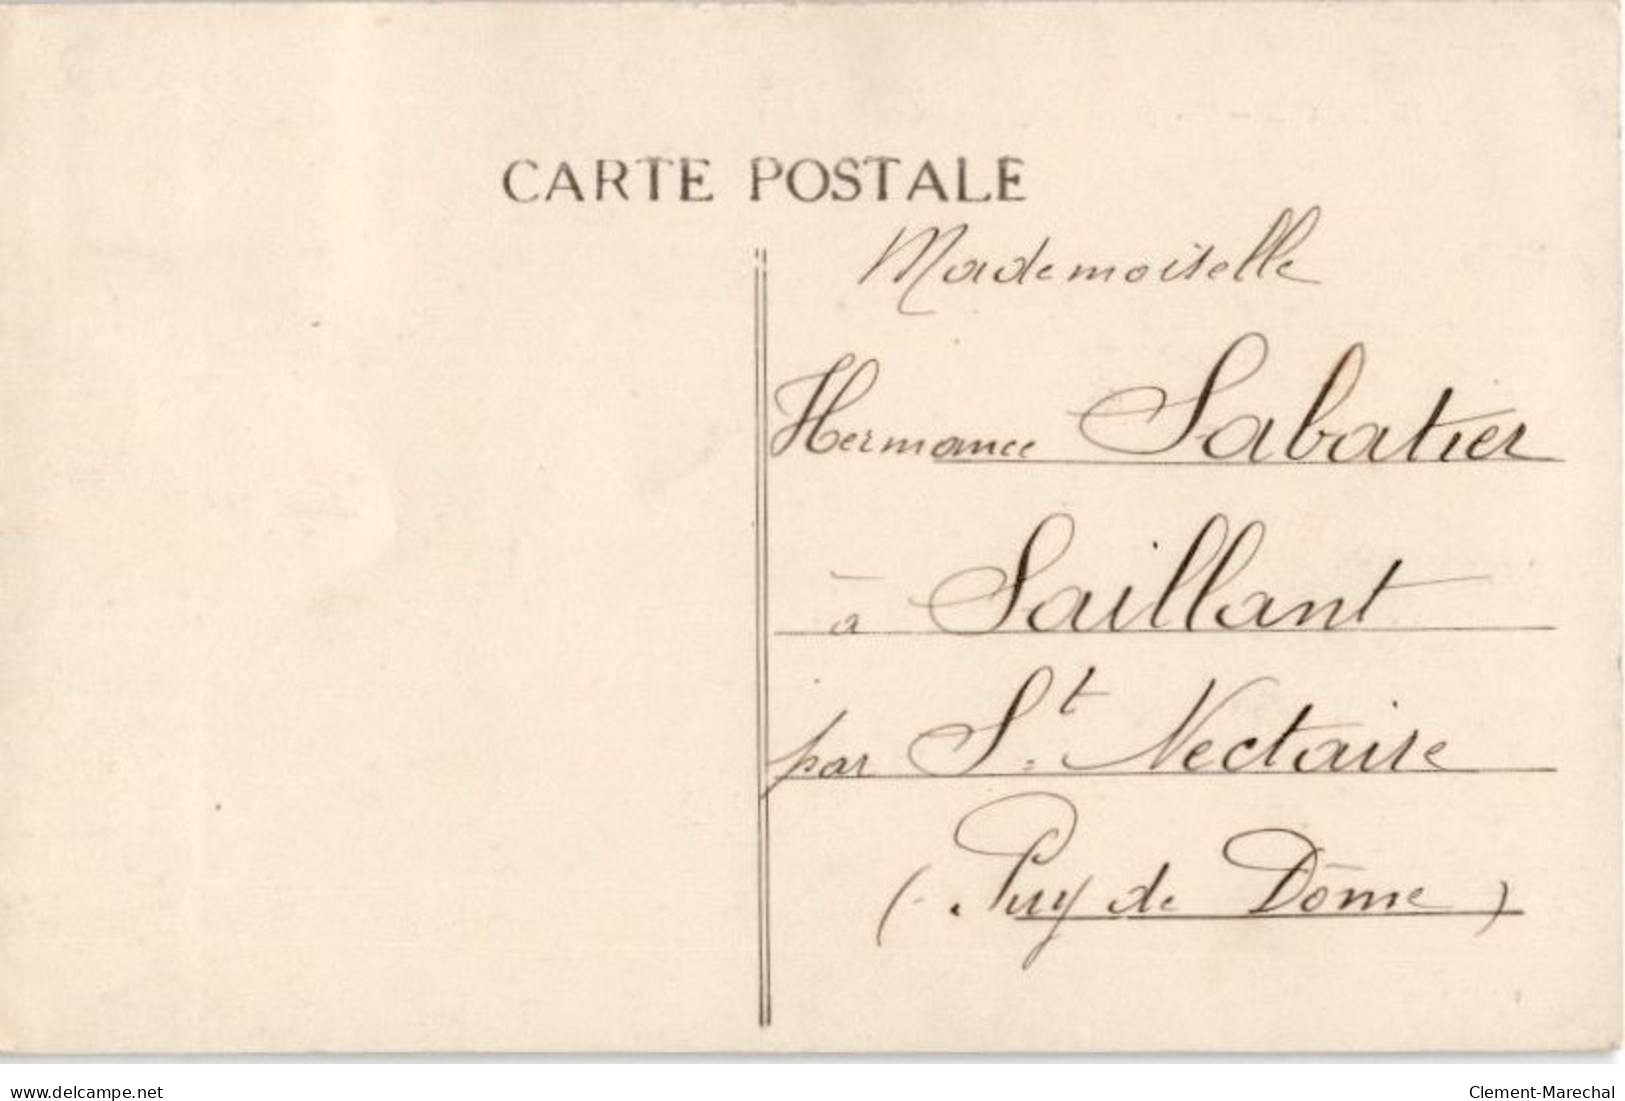 CARTE POSTALE
Mademoiselle
Hermance Sabatier
à Saillant
par St. Nectaire
(Puy de Dôme)
www.delcampe.net
Clement-Marechal